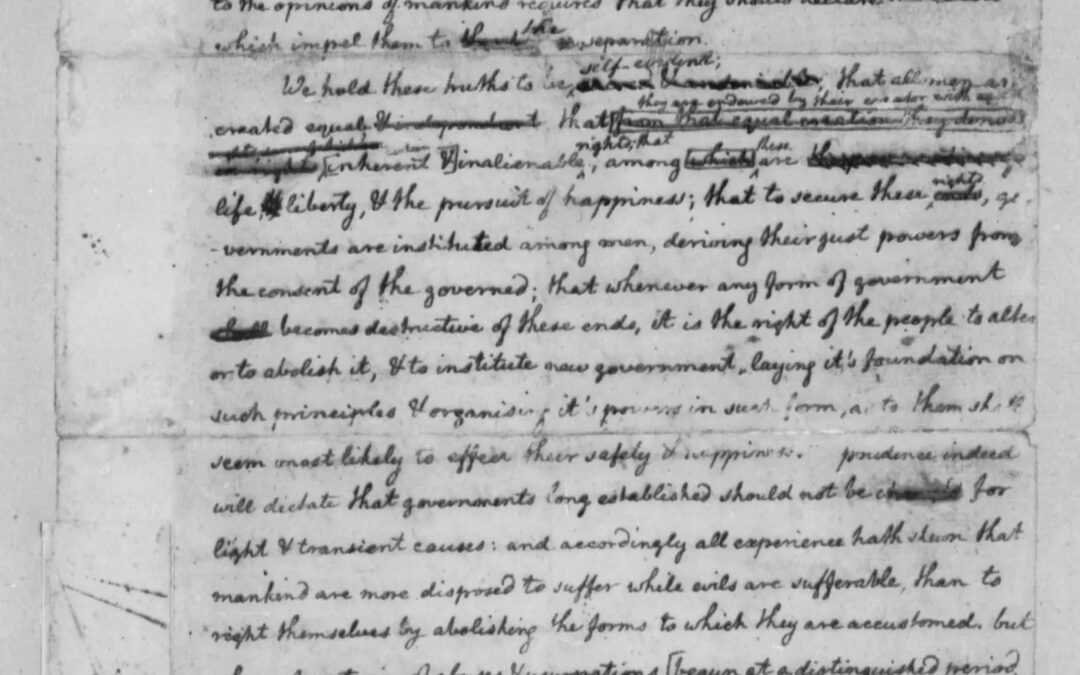 to the opinions of mankind requires that they should declare
which impel them to the separation.
self-evident;
We hold these truths to be, that all men ar
they are endowed by their creator with
created equal & independant that [from that equal creation they
rights; that these
[inherent &] inalienable, among [which] are
rights
life, & liberty, & the pursuit of happiness; that to secure these ends, go
-vernments are instituted among men, deriving their just powers from
the consent of the governed; that whenever any form of government
shall becomes destructive of these ends, it is the right of the people to alter
or to abolish it, & to institute new government, laying it's foundation on
such principles & organising it's powers in such form, as to them shall
seem most likely to effect their safety & happiness. prudence indeed
will dictate that governments long established should not be changed for
light & transient causes: and accordingly all experience hath shewn that
mankind are more disposed to suffer while evils are sufferable, than to
right themselves by abolishing the forms to which they are accustomed. but
abuses & usurpations [begun at a distinguished period,